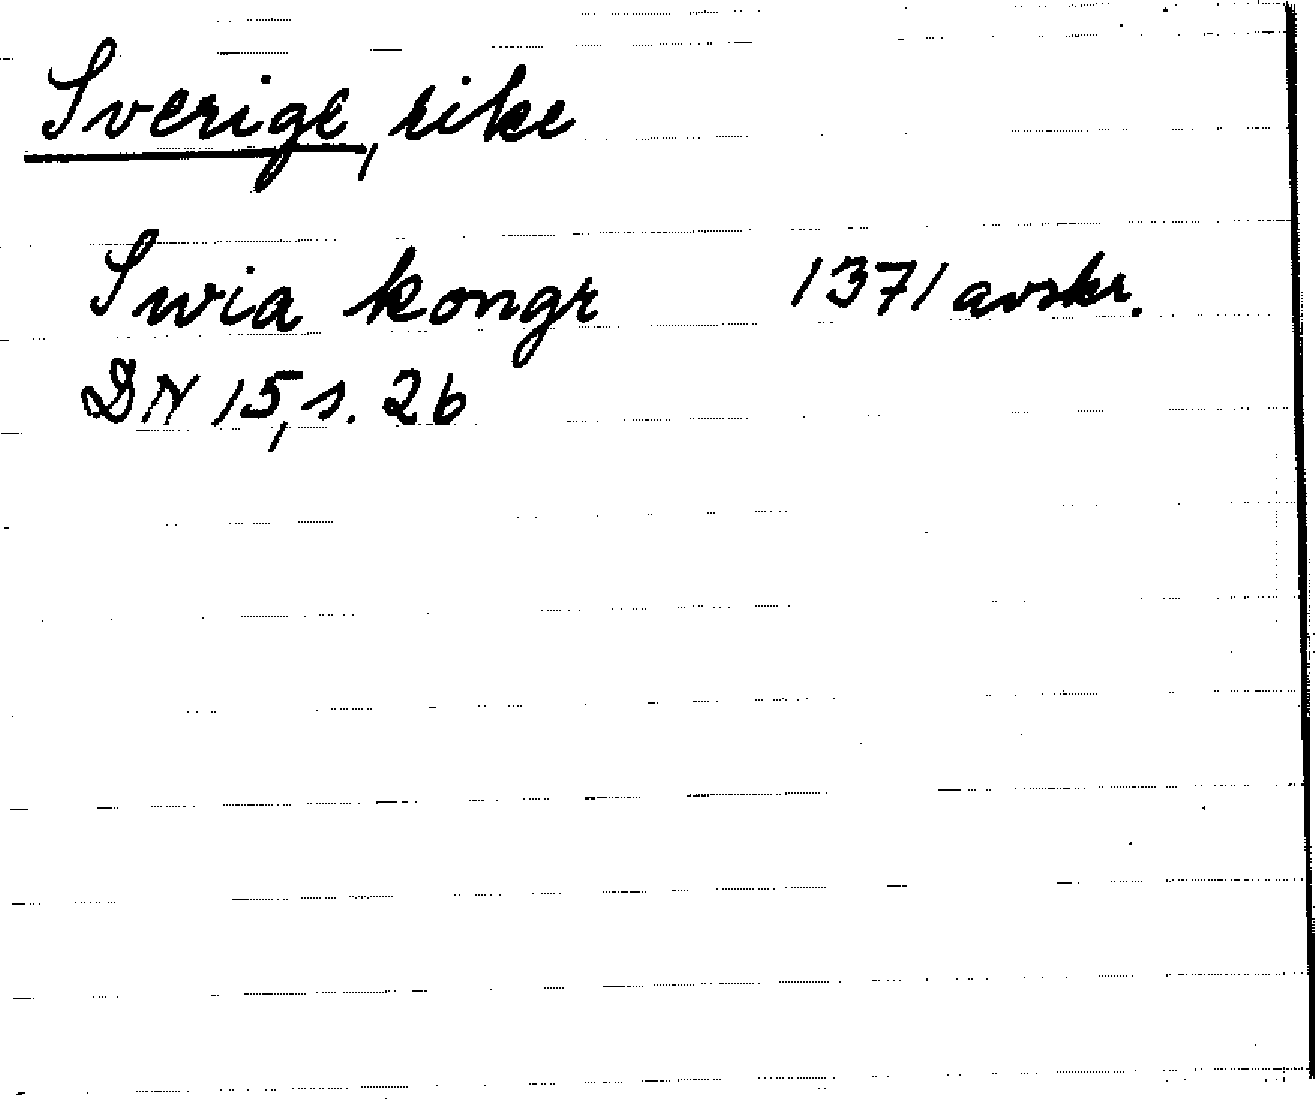 Sverige, rike
Swia kongr 1371 avskr.
DN 15, s. 26